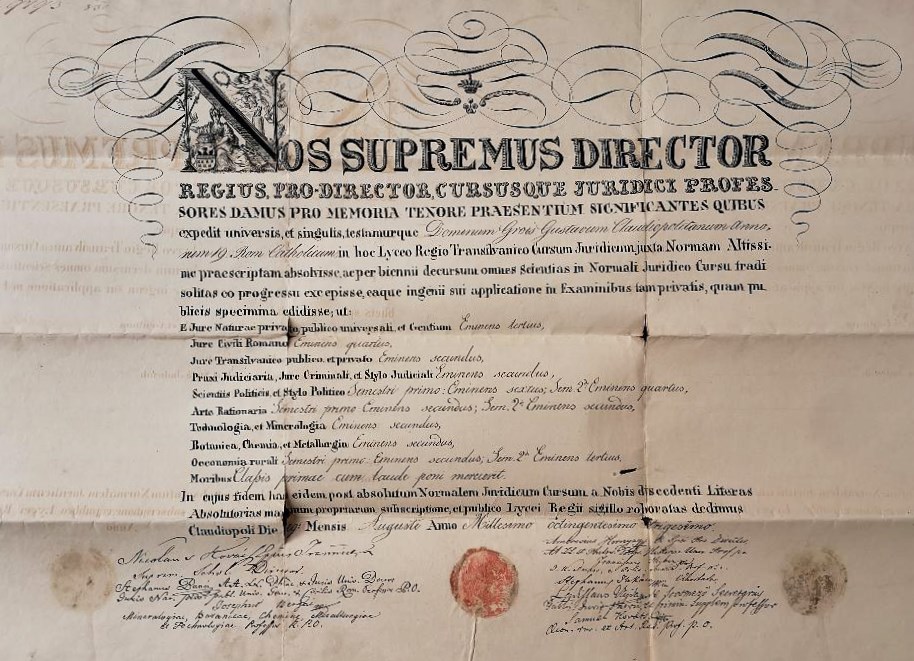 NOS SUPREMUS DIRECTOR
REGIUS, PRO-DIRECTOR, CURSUSQUE JURIDICI PROFES-
SORES DAMUS PRO MEMORIA TENORE PRAESENTIUM SIGNIFICANTES QUIBUS
expedit universis, et singulis, testamurque Dominum Grois Gustavum Claudiopolitanum Anno,
rum 19. Rom. Catholicum in hoc Lyceo Regio Transilvanico Cursum Juridicum, juxta Normam Altissi-
me praescriptam absolvisse, ac per biennii decursum omnes Scientias in Normali Juridico Cursu tradi
solitas eo progressu excepisse, eaque ingenii sui applicatione in Examinibus tam privatis, quam pu
blicis specimina edidisse; ut:
E Jure Naturae privato, publico universali, et Gentium Eminens tertius,
Jure Civili Romano Eminens quartus,
Jure Transilvanico publico, et privato Eminens secundus,
Praxi Judiciaria, Jure Criminali, et Stylo Judiciali Eminens secundus,
Scientiis Politicis, et Stylo Politico Semestri primo: Eminens sextus; Sem. 2º Eminens quartus,
Arte Rationaria Semestri primo Eminens secundus; Sem. 2º Eminens secundus,
Technologia, et Mineralogia Eminens secundus,
Botanica, Chemia, et Metallurgia Eminens secundus,
Oeconomia rurali Semestri primo: Eminens secundus; Sem. 2º Eminens tertius,
Moribus Classis primae cum laude poni meruerit.
In cujus fidem has eidem post absolutum Normalem Juridicum Cursum a Nobis discedenti Literas
Absolutorias manuum propriarum subscriptione, et publico Lycei Regii sigillo roboratas dedimus
Claudiopoli Die Mensis Augusti Anno Millesimo octingentesimo
Nicolaus
Suprem. Schol. Director
Stephanus
Josephus
Mineralogiae, Botanicae, Chemiae, Metallurgiae
et Technologiae Professor R. P. O.
Stephanus
Samuel
Prof. p. O.